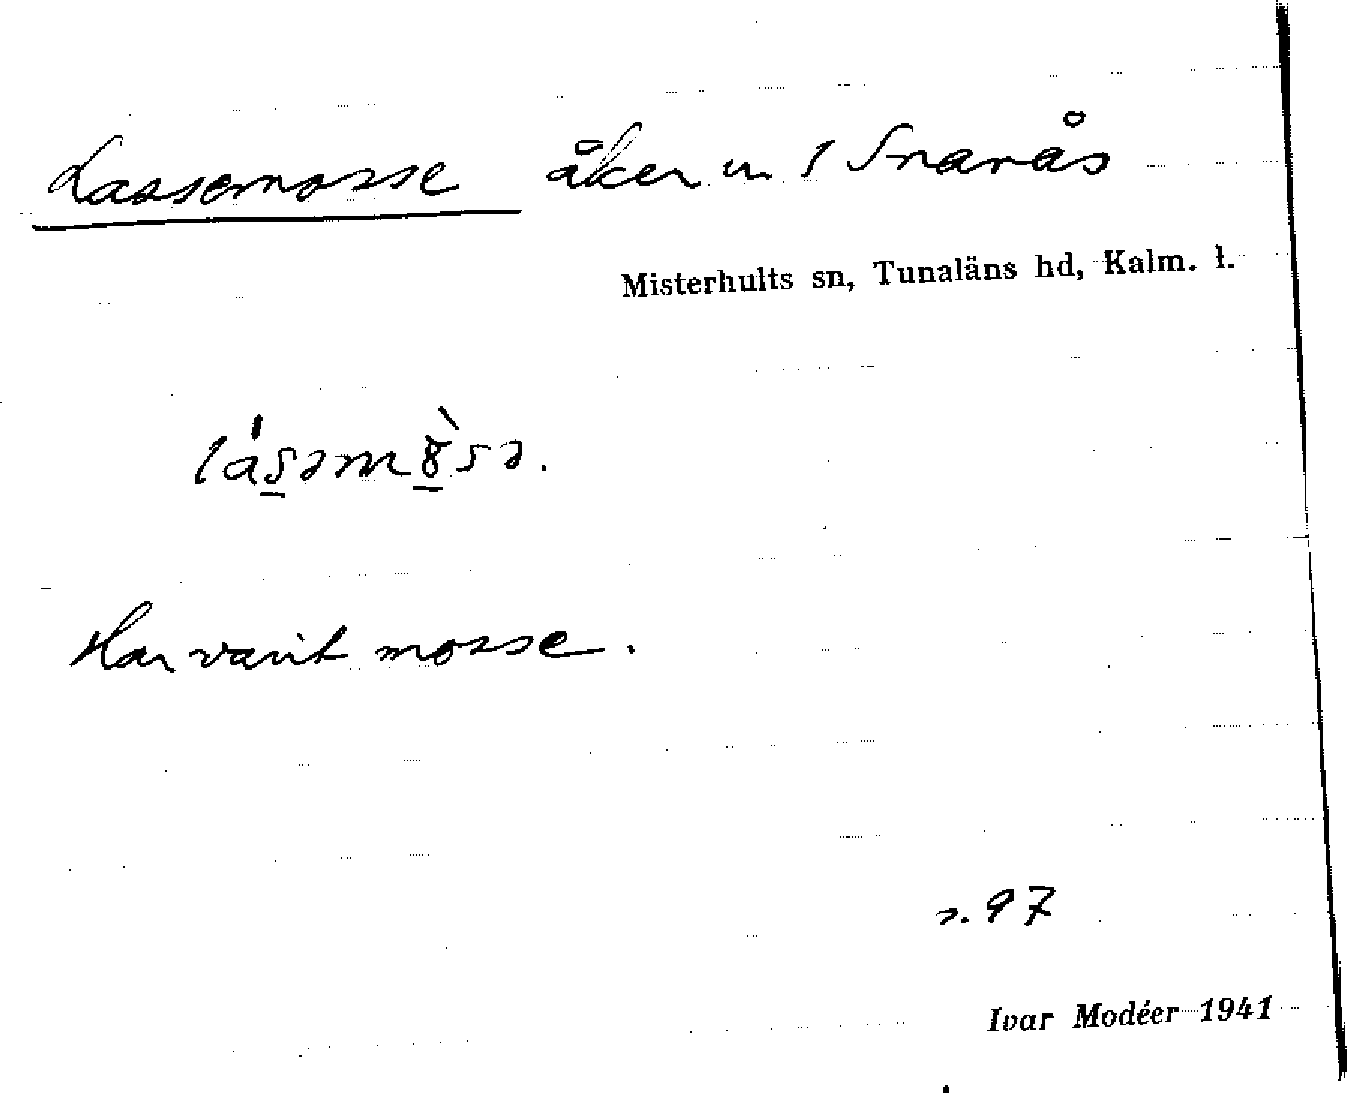 Lassemosse åker u 1 Snarås
Misterhults sn, Tunaläns hd, Kalm. l.
Har varit mosse.
s. 97
Ivar Modéer 1941